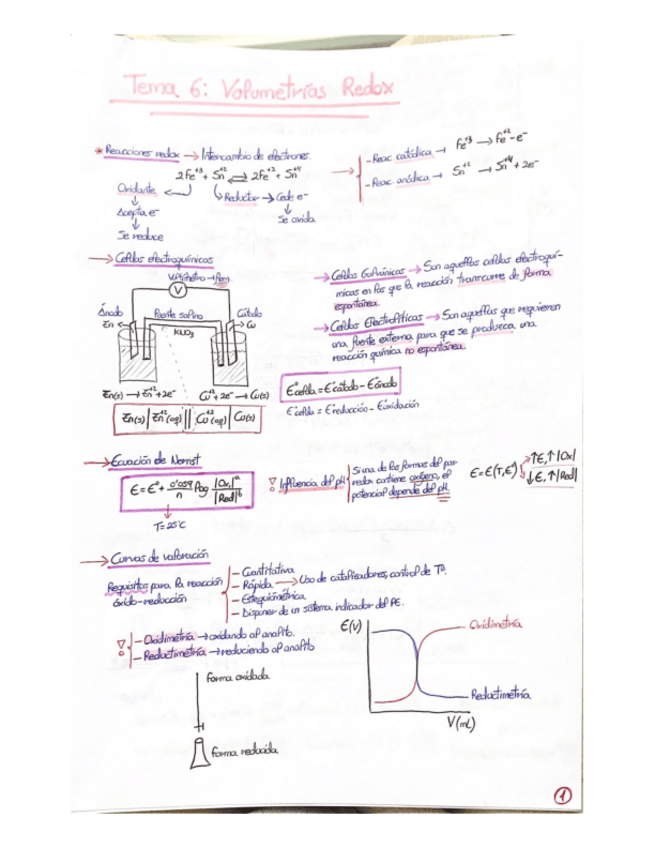 Tema 6: Volumetrías Redox
* Reacciones redox → Intercambio de electrones.
2Fe⁺³ + Sn⁺² ⇌ 2Fe⁺² + Sn⁺⁴
Oxidante ↵
↳ Reductor → Cede e⁻
↓
Acepta e⁻
↓
Se reduce
↓
Se oxida
→ - Reac. catódica → Fe⁺³ → Fe⁺² - e⁻
- Reac. anódica → Sn⁺² → Sn⁺⁴ + 2e⁻
→ Celdas electroquímicas
Voltímetro → Pem
V
Ánodo
Zn ←
Puente salino
KNO₃
Cátodo
→ Cu
Zn(s) → Zn⁺² + 2e⁻
Cu⁺² + 2e⁻ → Cu(s)
Zn(s) | Zn⁺²(aq) || Cu⁺²(aq) | Cu(s)
→ Celdas Galvánicas → Son aquellas celdas electroquí-
micas en las que la reacción transcurre de forma
espontánea.
→ Celdas Electrolíticas → Son aquellas que requieren
una fuente externa para que se produzca una
reacción química no espontánea.
E°celda = E°cátodo - E°ánodo
E°celda = E°reducción - E°oxidación
→ Ecuación de Nernst
E = E° + 0'059/n log |Ox|ᵃ/|Red|ᵇ
↓
T = 25°C
Influencia del pH
Si una de las formas del par
redox contiene oxígeno, el
potencial depende del pH.
E = E(T, E°)
↑E, ↑|Ox|
↓E, ↑|Red|
→ Curvas de valoración
Requisitos para la reacción
óxido-reducción
- Cuantitativa
- Rápida → Uso de catalizadores, control de Tª.
- Estequiométrica.
- Disponer de un sistema indicador del PE.
- Oxidimetría → oxidando al analito.
- Reductimetría → reduciendo al analito
forma oxidada
forma reducida
E(V)
Oxidimetría
Reductimetría
V(mL)
1